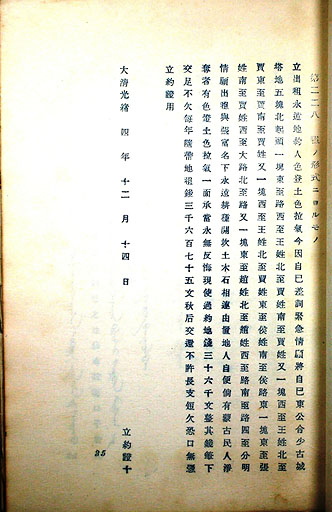 第二二八 證ノ形式ニヨルモノ
立出租永遠地約人色登土色拉氣今因自已差詞緊急情願將自已東公合少古城
塔地五塊北起頭一塊東至路西至王姓北至賈姓南至賈姓又一塊西至王姓北至
賈東至賈南至賈姓又一塊西至王姓北至賈姓東至侯姓南至侯路東一塊東至張
姓南至賈姓西至大路北至路又一塊東至趙姓北至趙姓西至路南至路四至分明
情願出租與張富名下永遠耕種開次土木石相連由置地人自便倘有蒙古民人淨
奪者有色登土色拉氣一面承當永無反悔現使過約地錢三十六千文整其錢筆下
交足不欠每年隨帶地租錢三千六百七十五文秋后交還不許長支短欠恐口無憑
立約證用
大清光緒 四年 十二月 十四日
立約證十
35